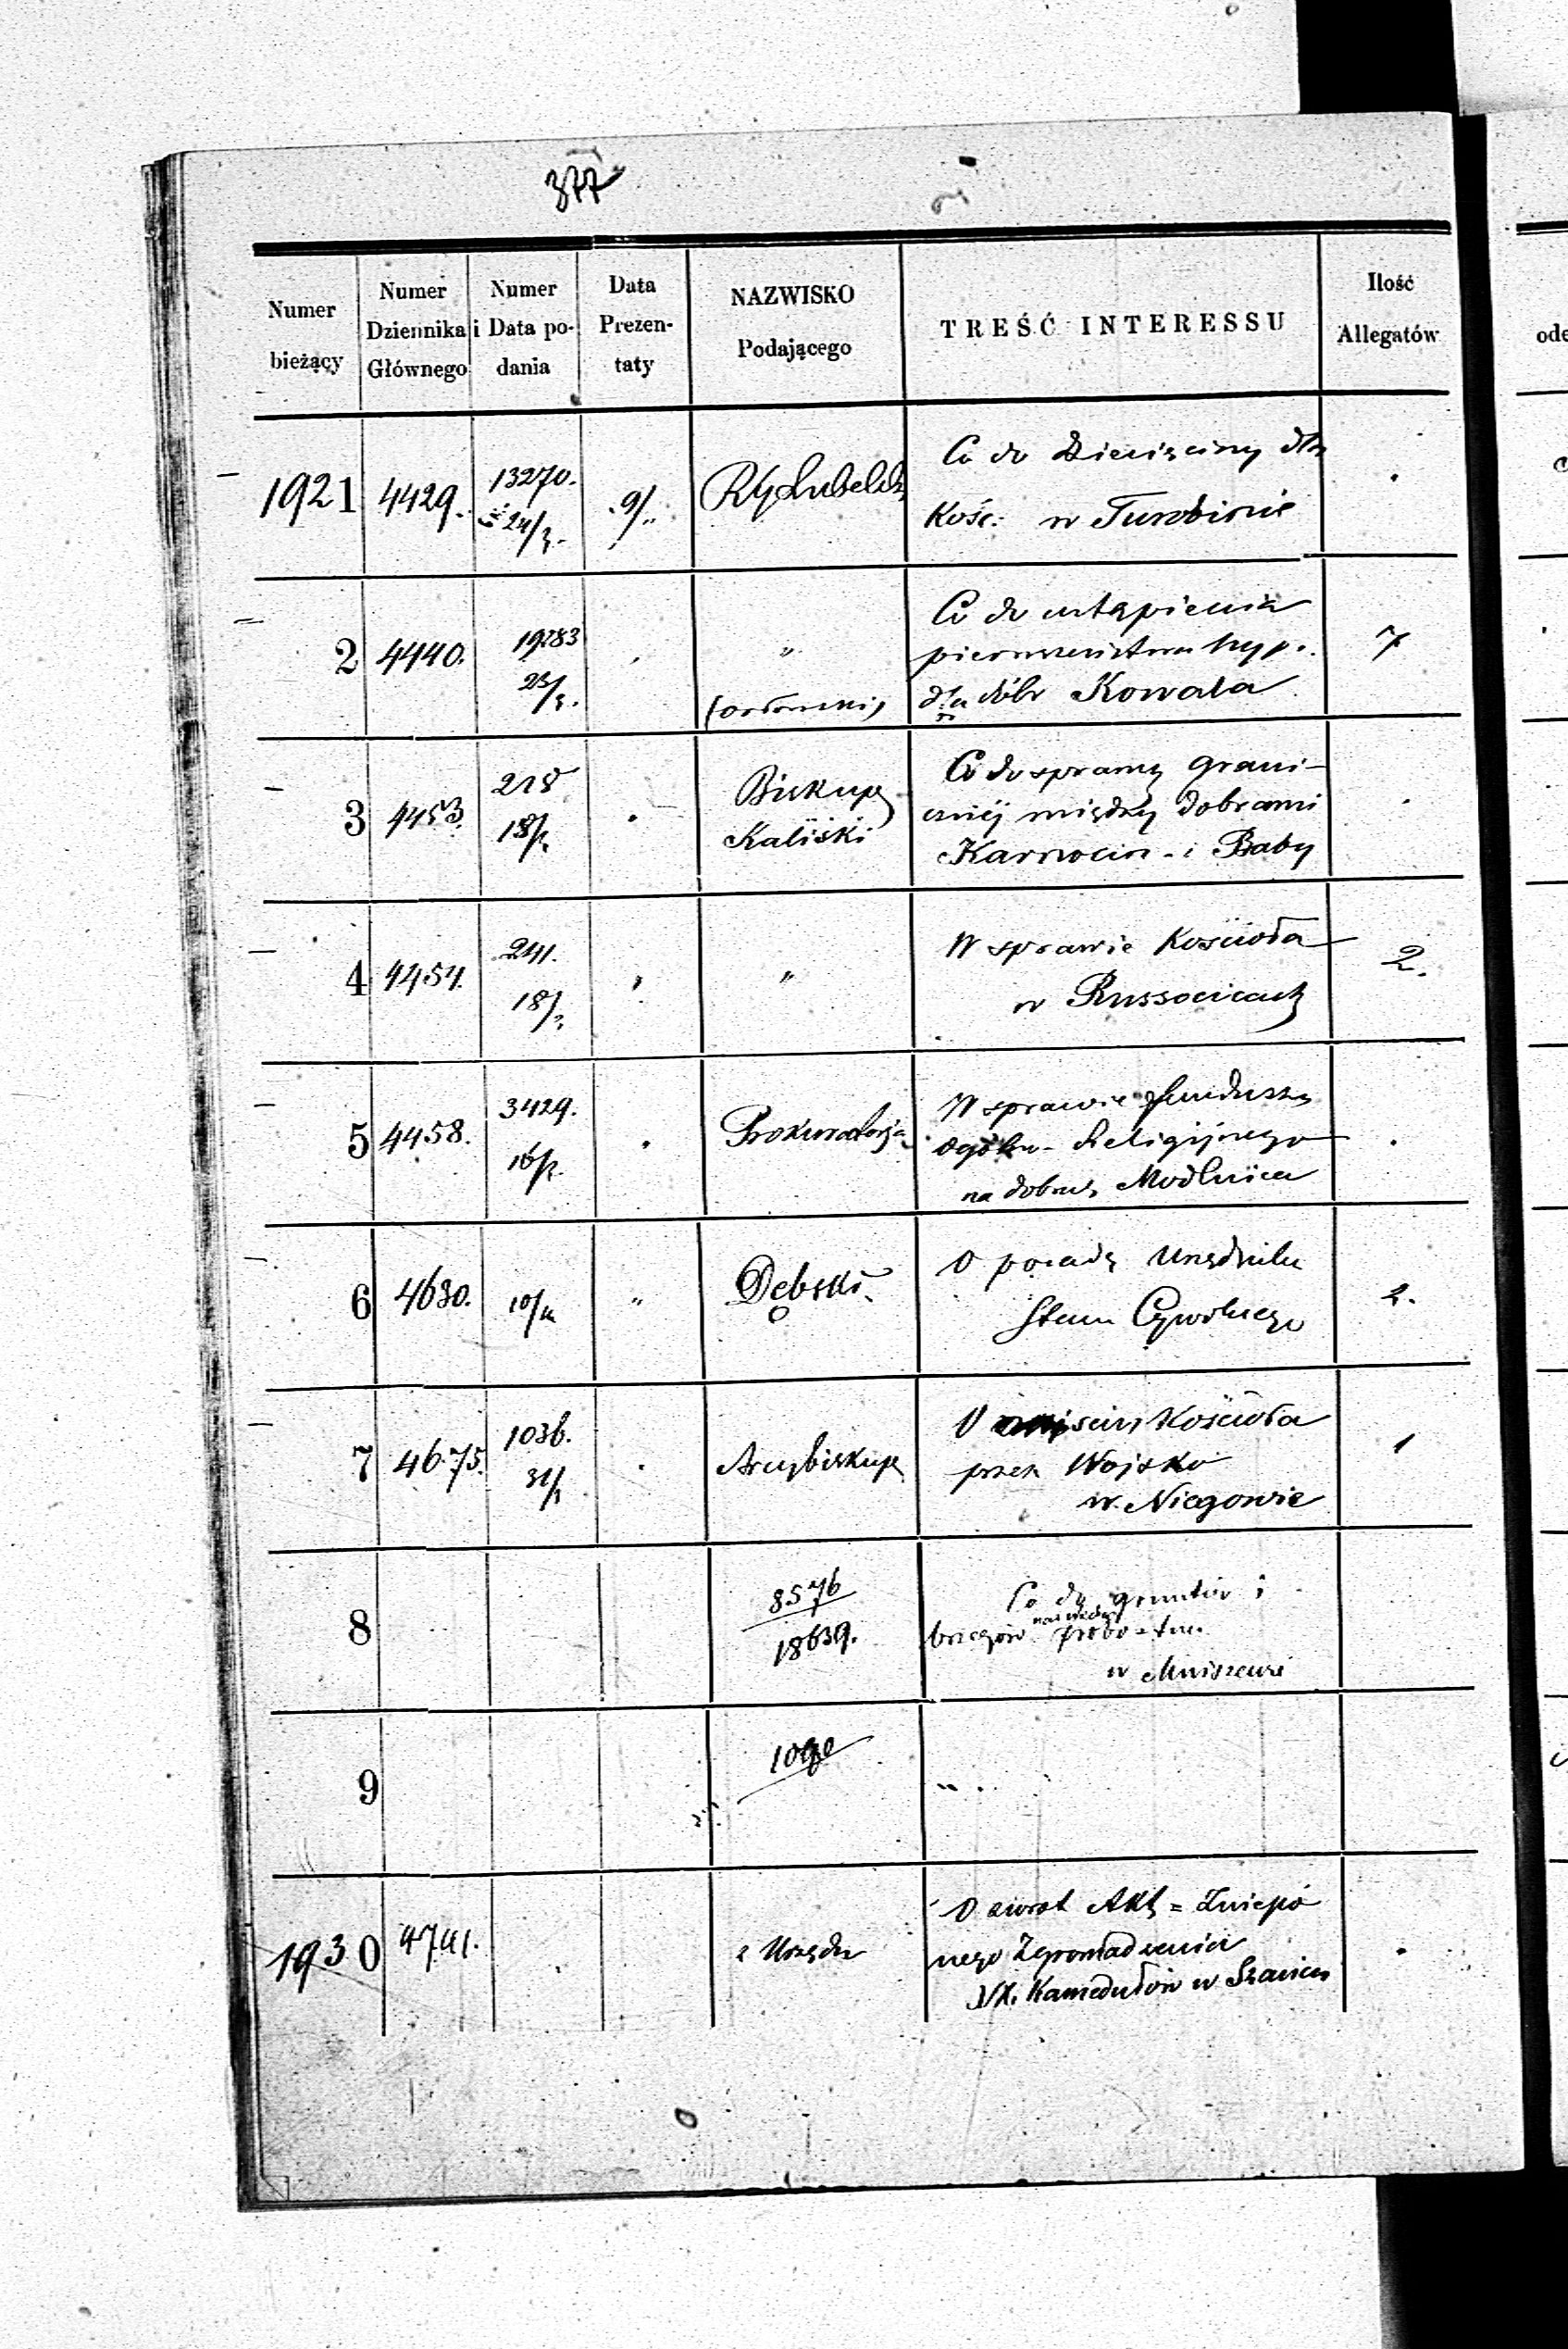 377
Numer bieżący
Numer Dziennika Głównego
Numer i Data podania
Data Prezentaty
NAZWISKO Podającego
TREŚĆ INTERESSU
Ilość Allegatów
1921 4429. 13270. 24/3. 9/" Rz Lubelski
Co do dziesięciny dla
Kośc: w Turobinie
2 4440. 19283 23/3. "
Co do ustąpienia
pierwszeństwa hyp.
dla dóbr Kowala
7
3 4453. 218 18/2 Biskup
Kaliski
Co do sprawy grani-
cznéj między dobrami
Karwocin i Baby
4 4454. 241. 18/2 " "
W sprawie Kościoła
w Russocicach
2.
5 4458. 3429. 16/2. Prokuratorja
W sprawie funduszu
ogólno-Religijnego
na dobrach Modlnica
6 4630. 10/4 " Dębski.
O posadę Urzędnika
Stanu Cywilnego
2.
7 4675. 1036. 31/1 Arcybiskup
Kościoła
przez Wojsko
w Niegowie
1
8 8576
18639.
Co do gruntów i
brzegów
w Mniszewie
9 1090
"
1930 4741. z Urzędu
O zwrot Akt
nego Zgromadzenia
XX. Kamedułów w Szańcu